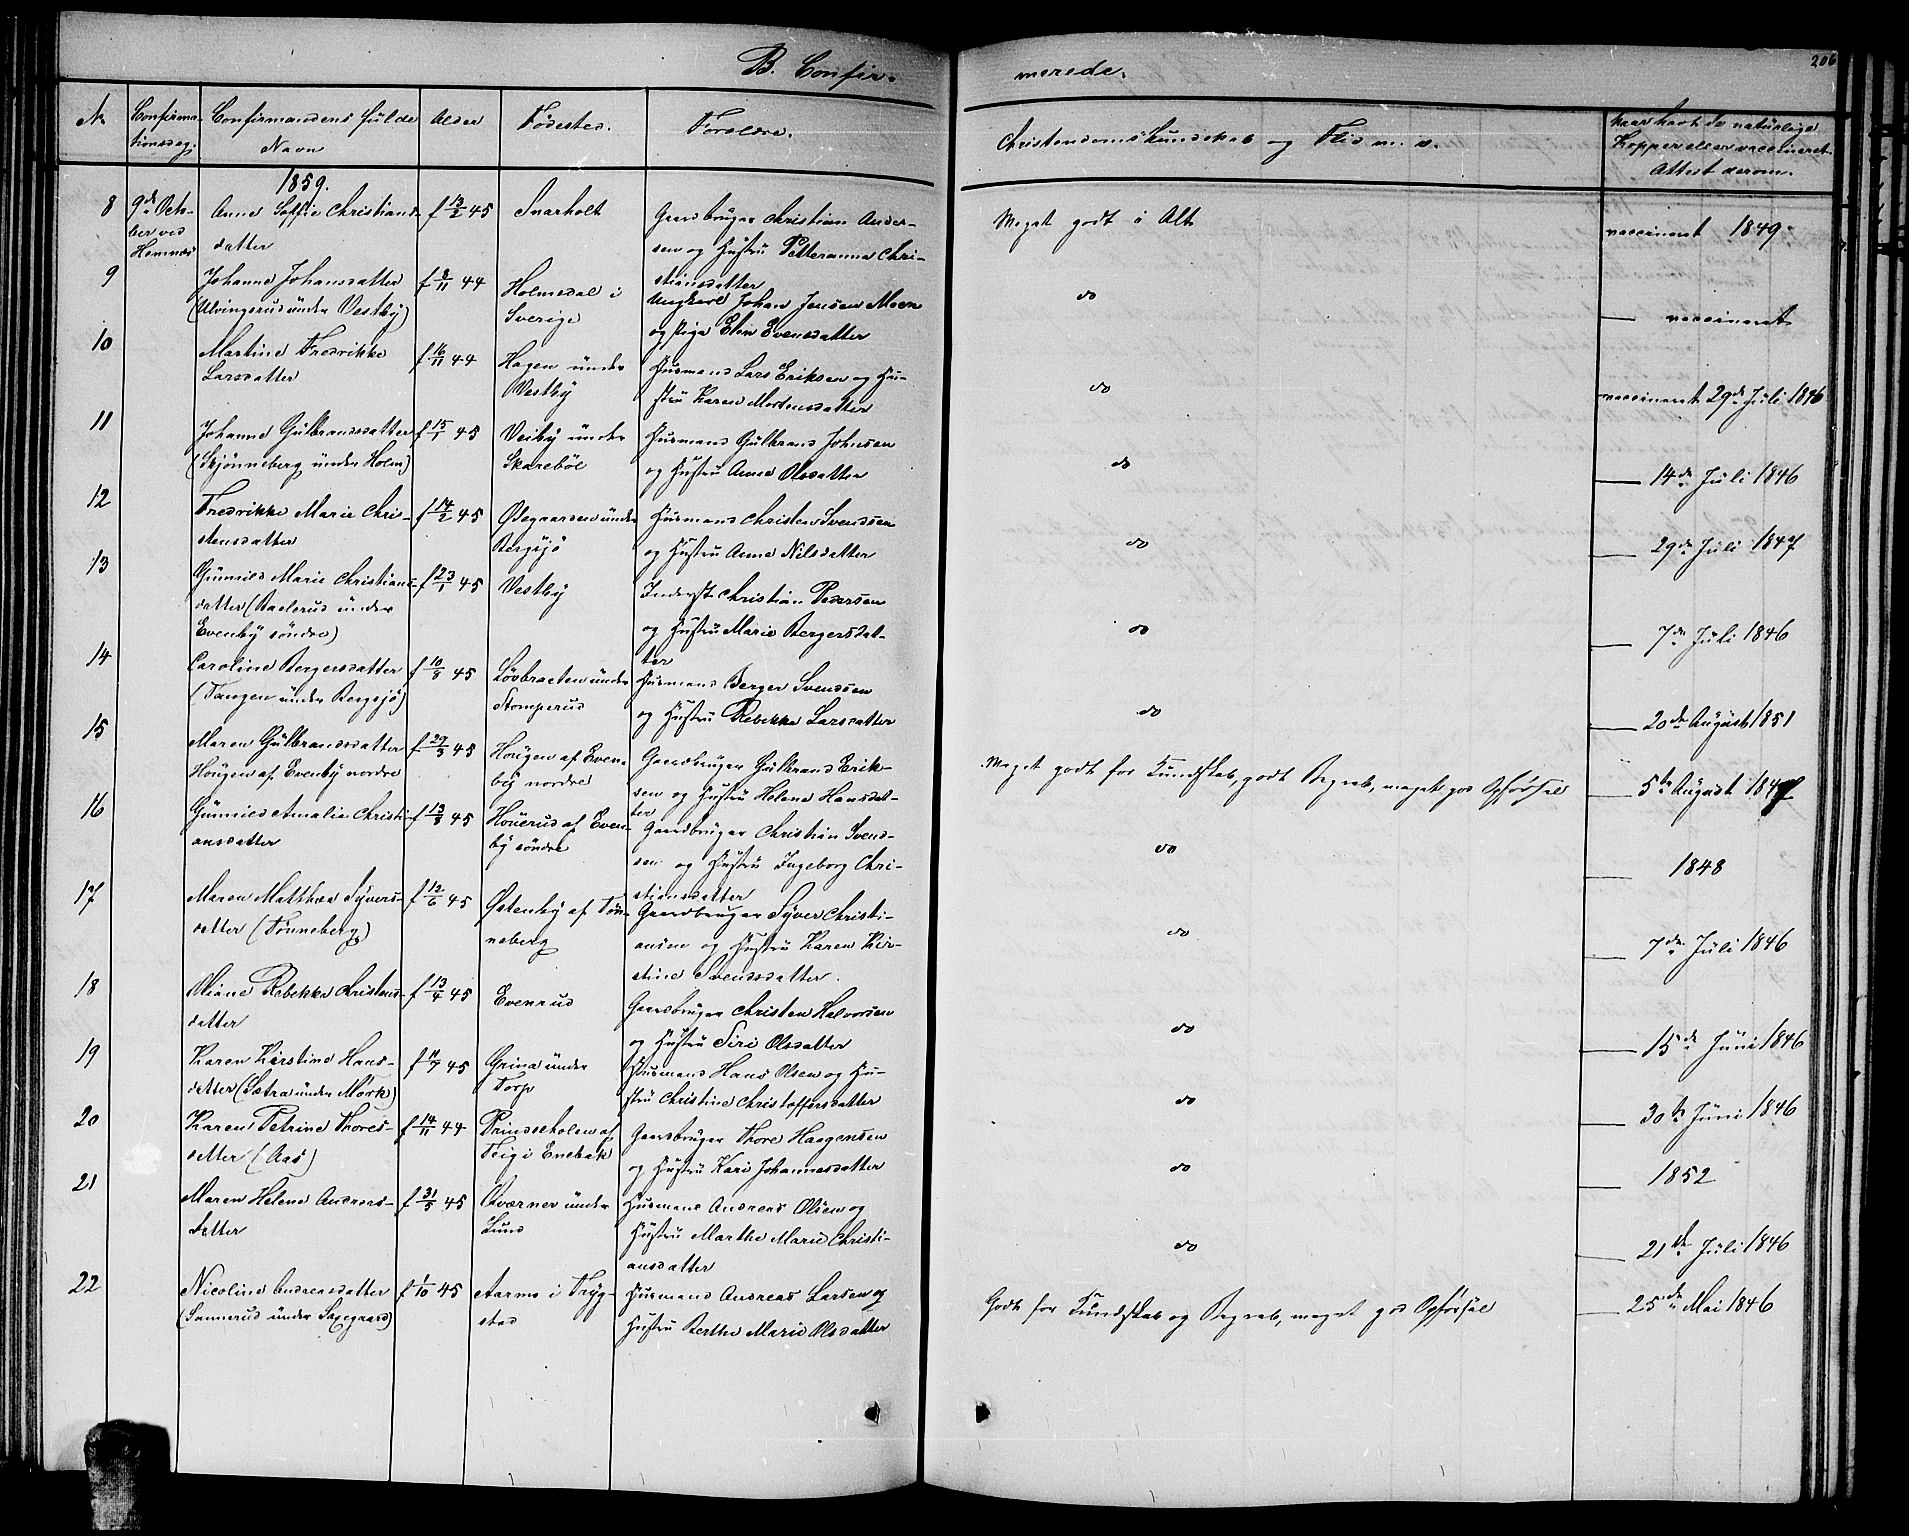 206
B. Confir-
merede.
No
Confirma-
tionsdag.
Confirmandens fulde
Navn
Alder
Födested.
Forældre.
Christendomskundskab og Flid m. v.
haar havt de naturlige
Kopper eller vaccineret
Attest derom.
1859.
8 9de Octo-
ber ved
Hemnæs
Anne Soffie Christians-
datter
f 13/2 45
Snarholt
Gaardbruger Christian Ander-
sen og Hustru Petteranna Chri-
stiansdatter
Meget godt i Alt
vaccineret 1849.
9
Johanne Johansdatter
(Ulvingsrud ünder Vestby)
f 8/11 44
Holmedal i
Sverige
Ungkarl Johan Jensen Moen
og Pige Elen Evensdatter
do
— vaccineret
10
Martine Fredrikke
Larsdatter
f 16/11 44
Hagen ünder
Vestby
Husmand Lars Eriksen og Hu-
strü Karen Mortensdatter
do
vaccineret 29de Juli 1846
11
Johanne Gülbrandsdatter
(Skjönneberg ünder Holm)
f 15/1 45
Veiby ünder
Skareböl
Husmand Gülbrand Johnsen
og Hustrü Anne Olsdatter
do
— 14de Juli 1846
12
Fredrikke Marie Chri-
stensdatter
f 14/2 45
Ødegaarden ünder
Bergsjö
Husmand Christen Svendsen
og Hustrü Anne Nilsdatter
do
— 29de Juli 1847
13
Günnild Marie Christians-
datter (Baelerud ünder
Evenby söndre)
f 23/1 45
Vestby
Inderst Christian Pedersen
og Hustrü Marie Bergersdat-
ter
do
— 7de Jüli 1846
14
Caroline Bergersdatter
(Tangen ünder Bergsjö)
f 10/8 45
Lövbraaten ünder
Stomperud
Husmand Berger Svendsen
og Hustrü Rebekka Larsdatter
do
— 20de August 1851
15
Maren Gülbrandsdatter
Hougen af Evenby nordre
f 29/3 45
Hougen af Even-
by nordre
Gaardbruger Gülbrand Erik-
sen og Hustrü Helene Hansdat-
ter
Meget godt for Kundskab, godt Begreb, meget god Opförsel
— 5te August 1847
16
Günnild Amalie Christi-
ansdatter
f 13/3 45
Houerud af Even-
by söndre
Gaardbruger Christian Svend-
sen og Hustrü Ingeborg Chri-
stiansdatter
do
— 1848
17
Maren Mathea Syvers-
datter (Tönneberg)
f 12/6 45
Østenby af Tön-
neberg
Gaardbruger Syver Christi-
ansen og Hustrü Karen Kir-
stine Svendsdatter.
do
— 7de Juli 1846
18
Oliane Rebekka Christens-
datter
f 13/4 45
Evenrud
Gaardbruger Christen Halvorsen
og Hustrü Siri Olsdatter
do
— 15de Jüni 1846
19
Karen Kirstine Hans-
datter (Sætra ünder Mörk)
f 11/7 45
Grina ünder
Torp
Husmand Hans Olsen og Hu-
strü Christine Christoffersdatter
do
— 30te Jüni 1846
20
Karen Petrine Thores-
datter (Aas)
f 14/11 44
Prindseholen af
Teig i Enebak
Gaardbruger Thore Haagensen
og Hustrü Kari Johannesdatter
do
— 1852
21
Maren Helene Andreas-
datter
f 31/5 45
Qværner ünder
Lund
Husmand Andreas Olsen og
Hustrü Marthe Marie Christi-
ansdatter
do
— 21de Juli 1846
22
Nicoline Andreasdatter
(Sannerud ünder Sagegaard)
f 1/10 45
Aarnes i Tryg-
stad
Husmand Andreas Larsen og
Hustrü Berthe Marie Olsdatter
Godt for Kundskab og Begreb, meget god Opförsel
— 25de Mai 1846